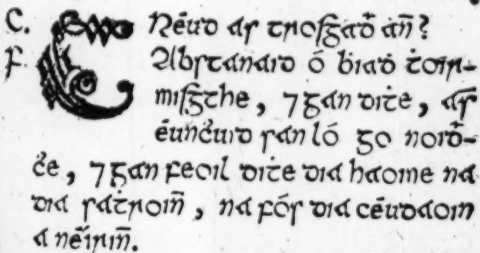 C. CNéud as trosgaḋ añ?
F. Abstanaid ó ḃiaḋ ṫoir-
misgthe, ⁊ gan diṫe, as̄
éunċuid san ló go noiḋ-
ċe, ⁊ gan feoil diṫe dia haoine na
dia saṫroiñ, na fós dia céudaoin
a néiriñ.